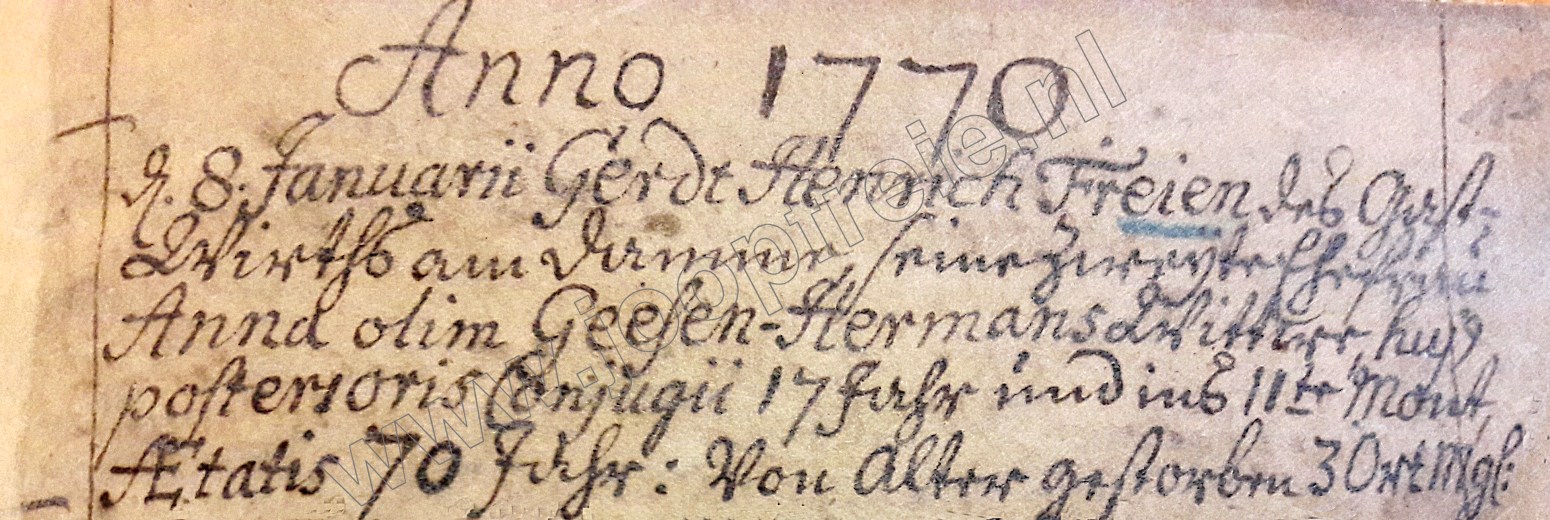 Anno 1770
d. 8. Januarii Gerdt Henrich Freien des Gast-
Wirths am Damme, seine zweyte Ehefrau
Anna olim Geesen-Hermans Wittwe, huj9
posterioris Conjugii 17 Jahr und ins 11te Mont,
Ætatis 70 Jahr: Von Alter gestorben 3 Ort Mgl:
www.joopfreie.nl